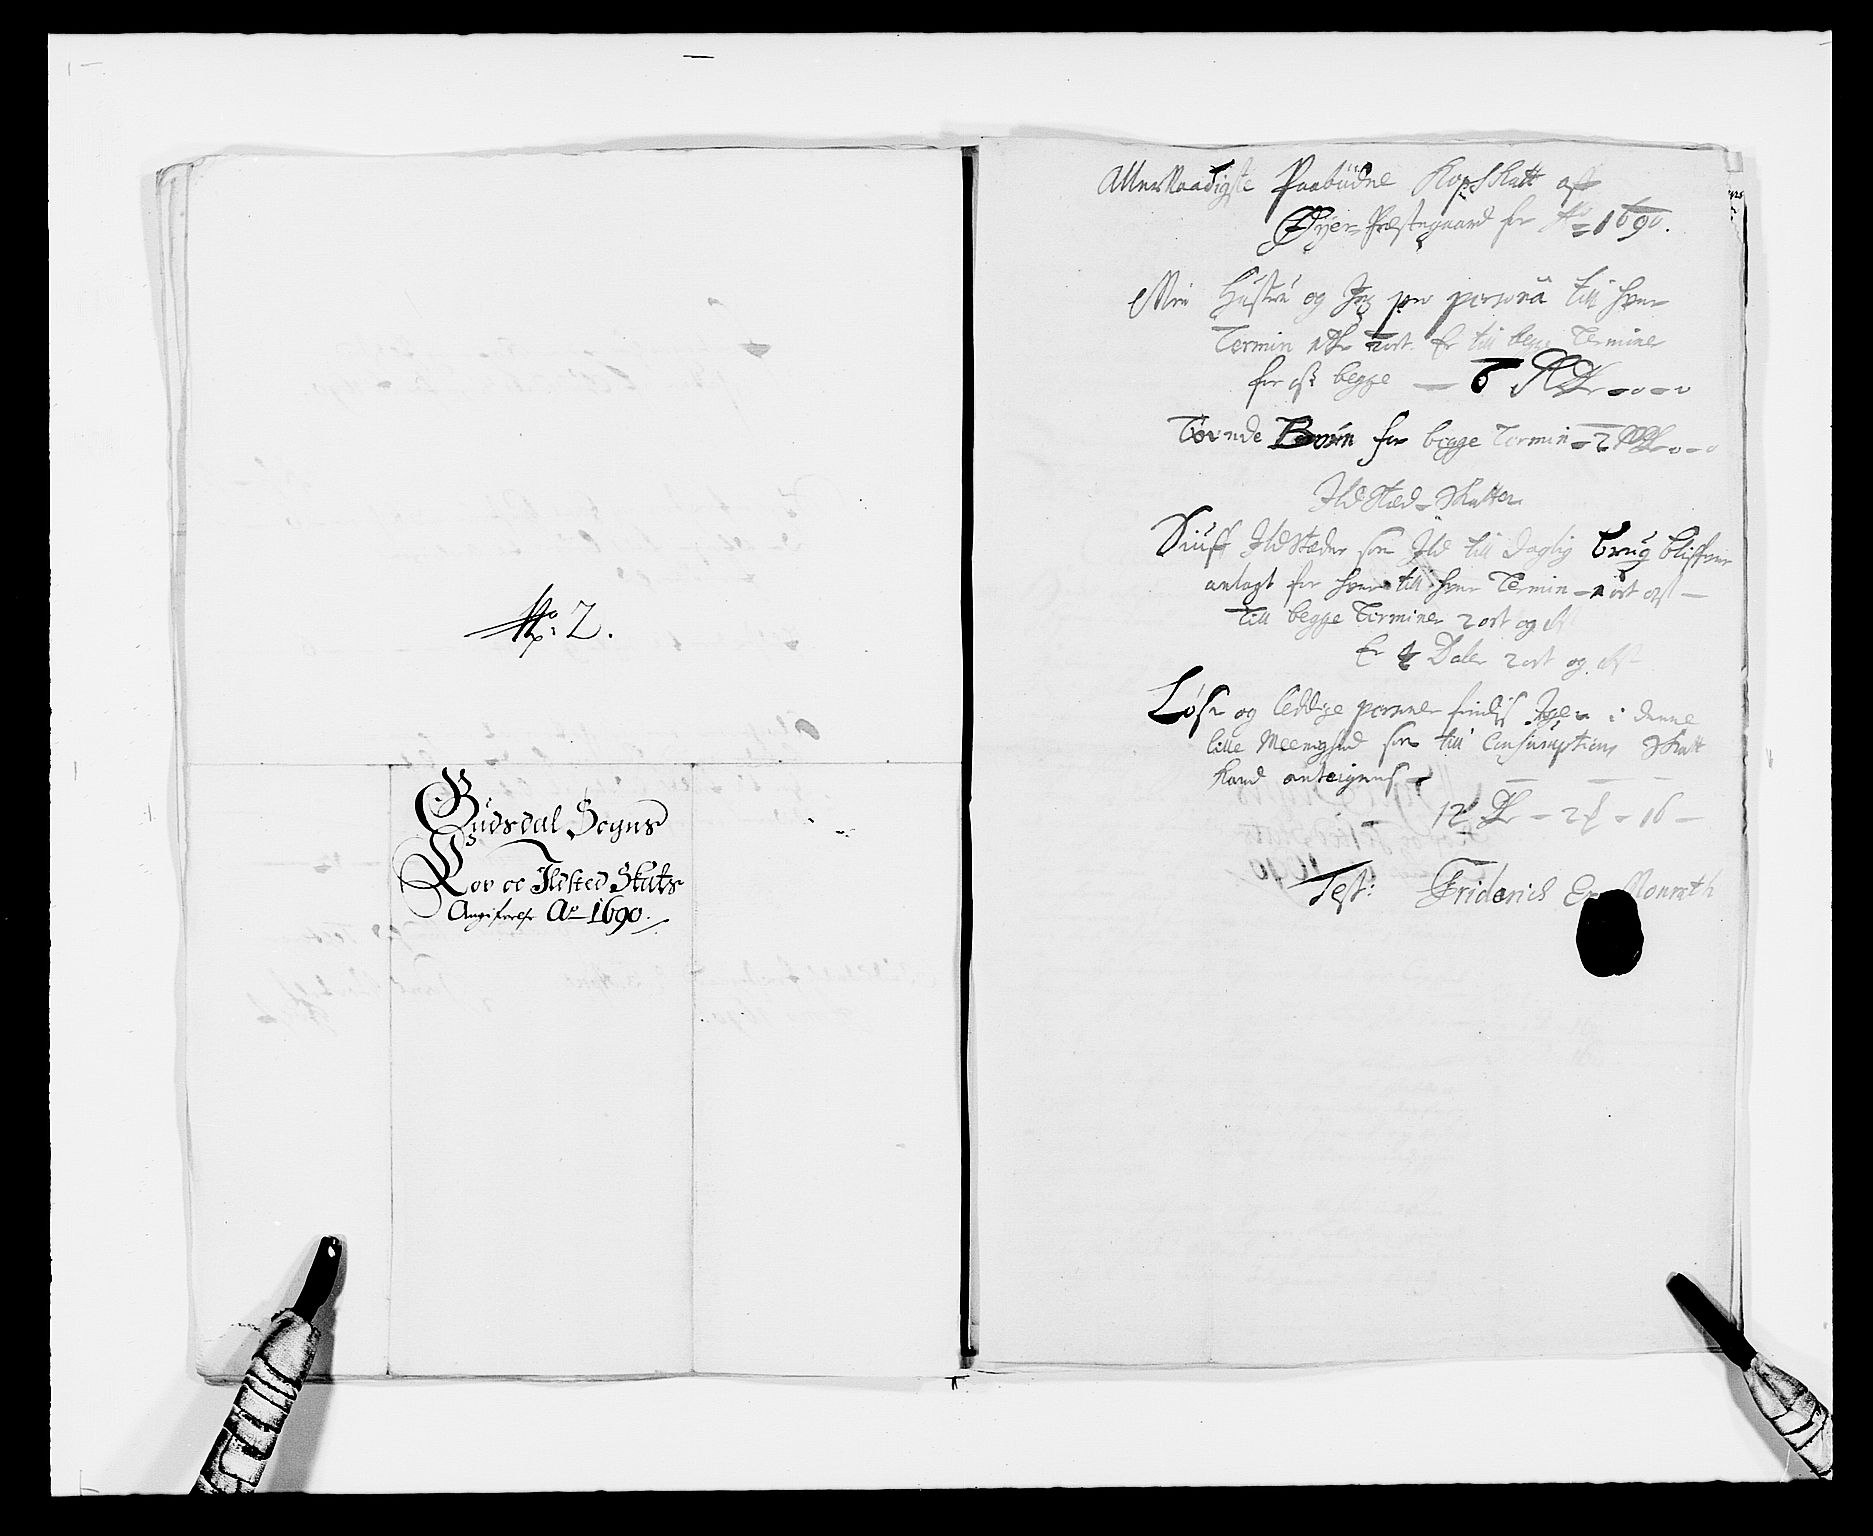 No: 2.
Gudsdal Sogns
Kop oc Ildsted Skats
Angifvelse Ao 1690.
Aller Naadigste Paabudne KopSkatt aff
Øyer Præstegaard for Ao 1690.
Min Hustru og Jeg pro persona till hver
Termin 1 Dr 2 ort Er till begge Terminer
for oss begge — 6 RDr - 0 - 0
Tvende Børn for begge Termin - 2 RDr 0 - 0
Ildsted Skatten
Siuff Ildstæder som Ild till daglig brug bliffver
anlagt for hver till hver Termin - 1 ort
till begge Terminer 2 ort og
Er 4 Daler 2 ort og
Løse og leddige personer findis Ingen i denne
lille Meenighed som till Consumptions Skatt
kand anteignis
12 Dr - 2 - 16 -
Test: Friderich Monrath